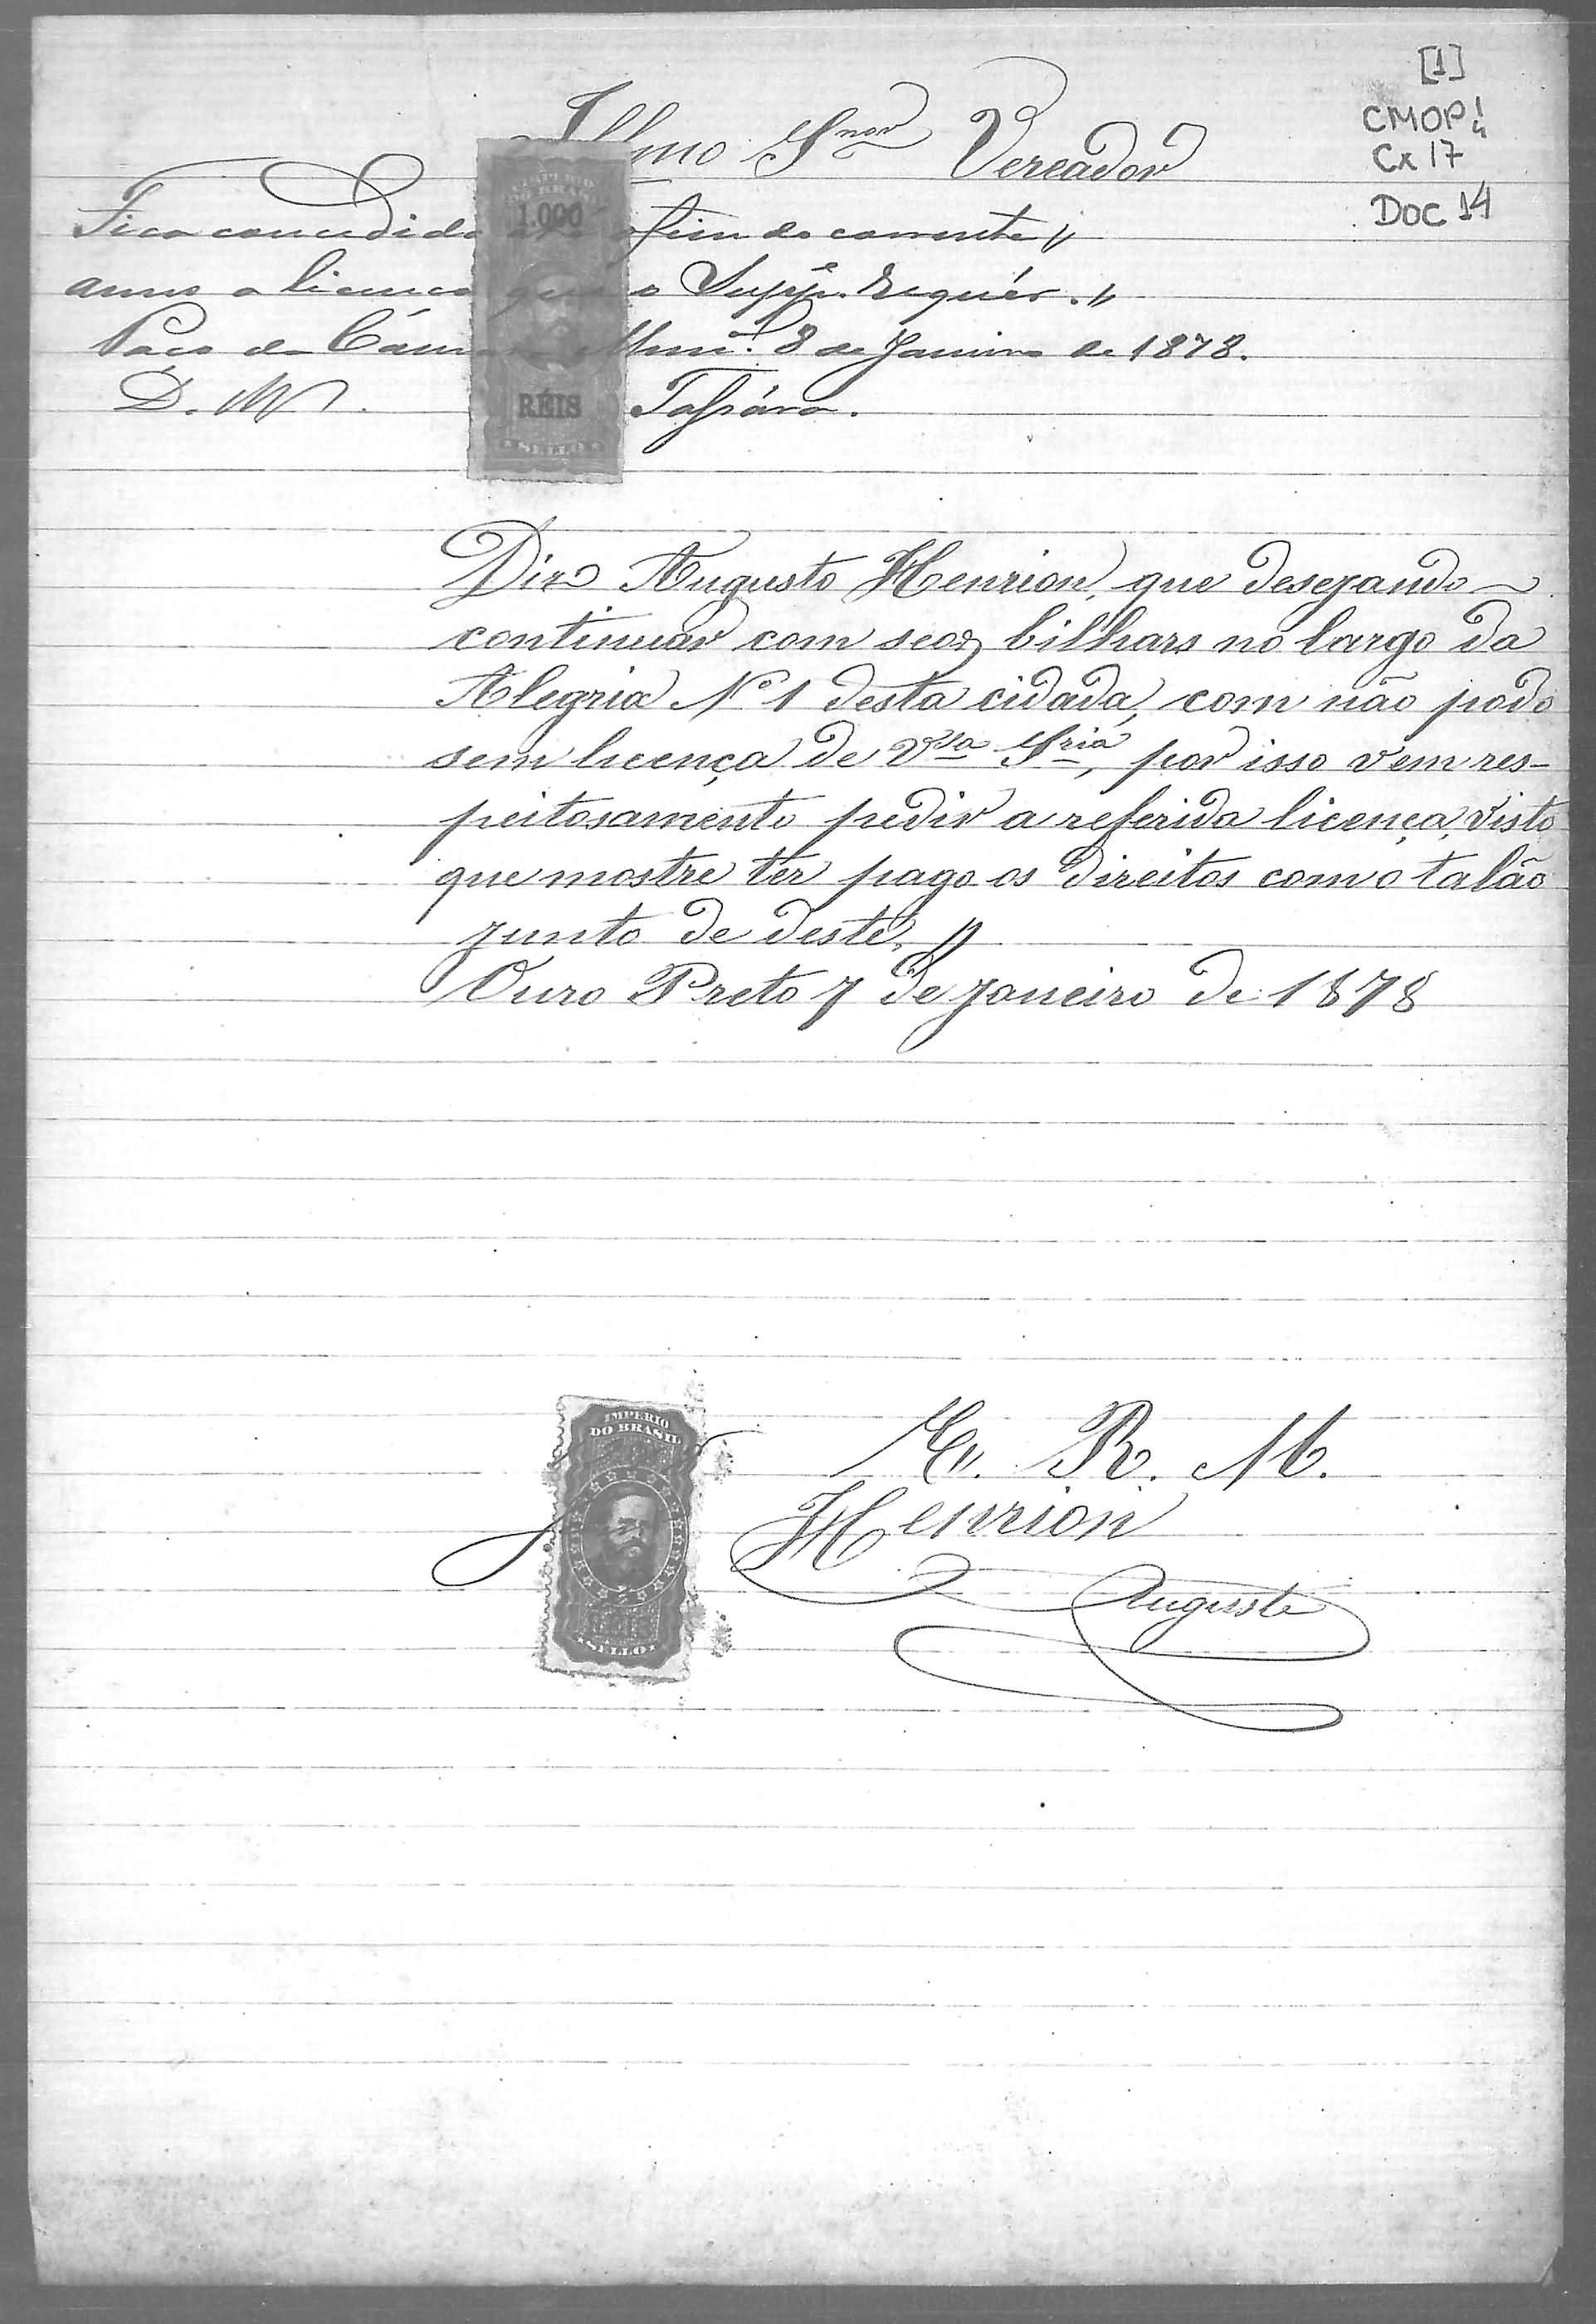 [1]
CMOP
Cx 17
DOC 14
Illmo Snor Vereador
Fica concedida o fim do corrente
anno a licença que o Suppe. Requér.
Paço da Cam Mun. 8 de Janeiro de 1878.
D. M.
IMPERIO
DO BRASIL
1.000
REIS
SELLO
Diz Augusto Henrion, que desejando
continuar com seos bilhars no largo da
Alegria No 1 desta cidada, com não pode
sem licença de Vsa Sria, por isso vem res-
peitosamente pedir a referida licença, visto
que mostre ter pago os direitos com o talão
junto de deste,
Ouro Preto 7 de janeiro de 1878
IMPERIO
DO BRASIL
SELLO
E. R. M.
Henrion
Auguste